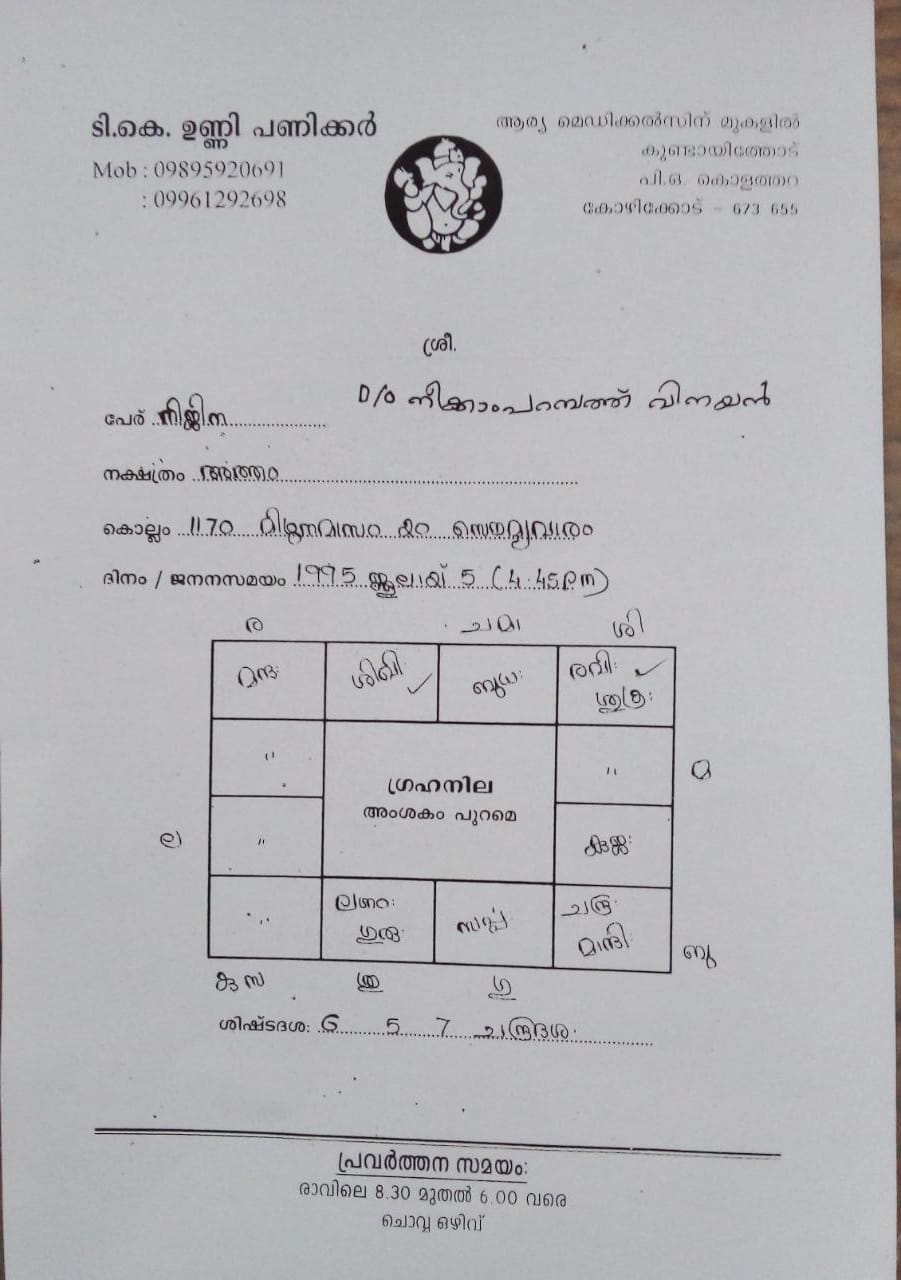 ടി.കെ. ഉണ്ണി പണിക്കർ
Mob : 09895920691
: 09961292698
ആര്യ മെഡിക്കൽസിന് മുകളിൽ
കുണ്ടായിത്തോട്
പി.ഒ. കൊളത്തറ
കോഴിക്കോട് - 673 655
ശ്രീ.
പേര് നിജിന D/o നീക്കാംപറമ്പത്ത് വിനയൻ
നക്ഷത്രം അത്തം
കൊല്ലം 1170
ദിനം / ജനനസമയം 1995 ജൂലായ് 5 (4.45pm)
ര ച മാ ശി
മന്ദഃ ശിഖി ബുധഃ രവിഃ
ശുക്രഃ
" "
മ
ഗ്രഹനില
അംശകം പുറമെ
ല " കുജഃ
" ലഗ്നഃ സർപ്പ ചന്ദ്രഃ
ഗുരു മാന്ദിഃ
ബു
കു സ ശു ഗു
ശിഷ്ടദശ: 6 5 7 ചന്ദ്രദശ
പ്രവർത്തന സമയം:
രാവിലെ 8.30 മുതൽ 6.00 വരെ
ചൊവ്വ ഒഴിവ്